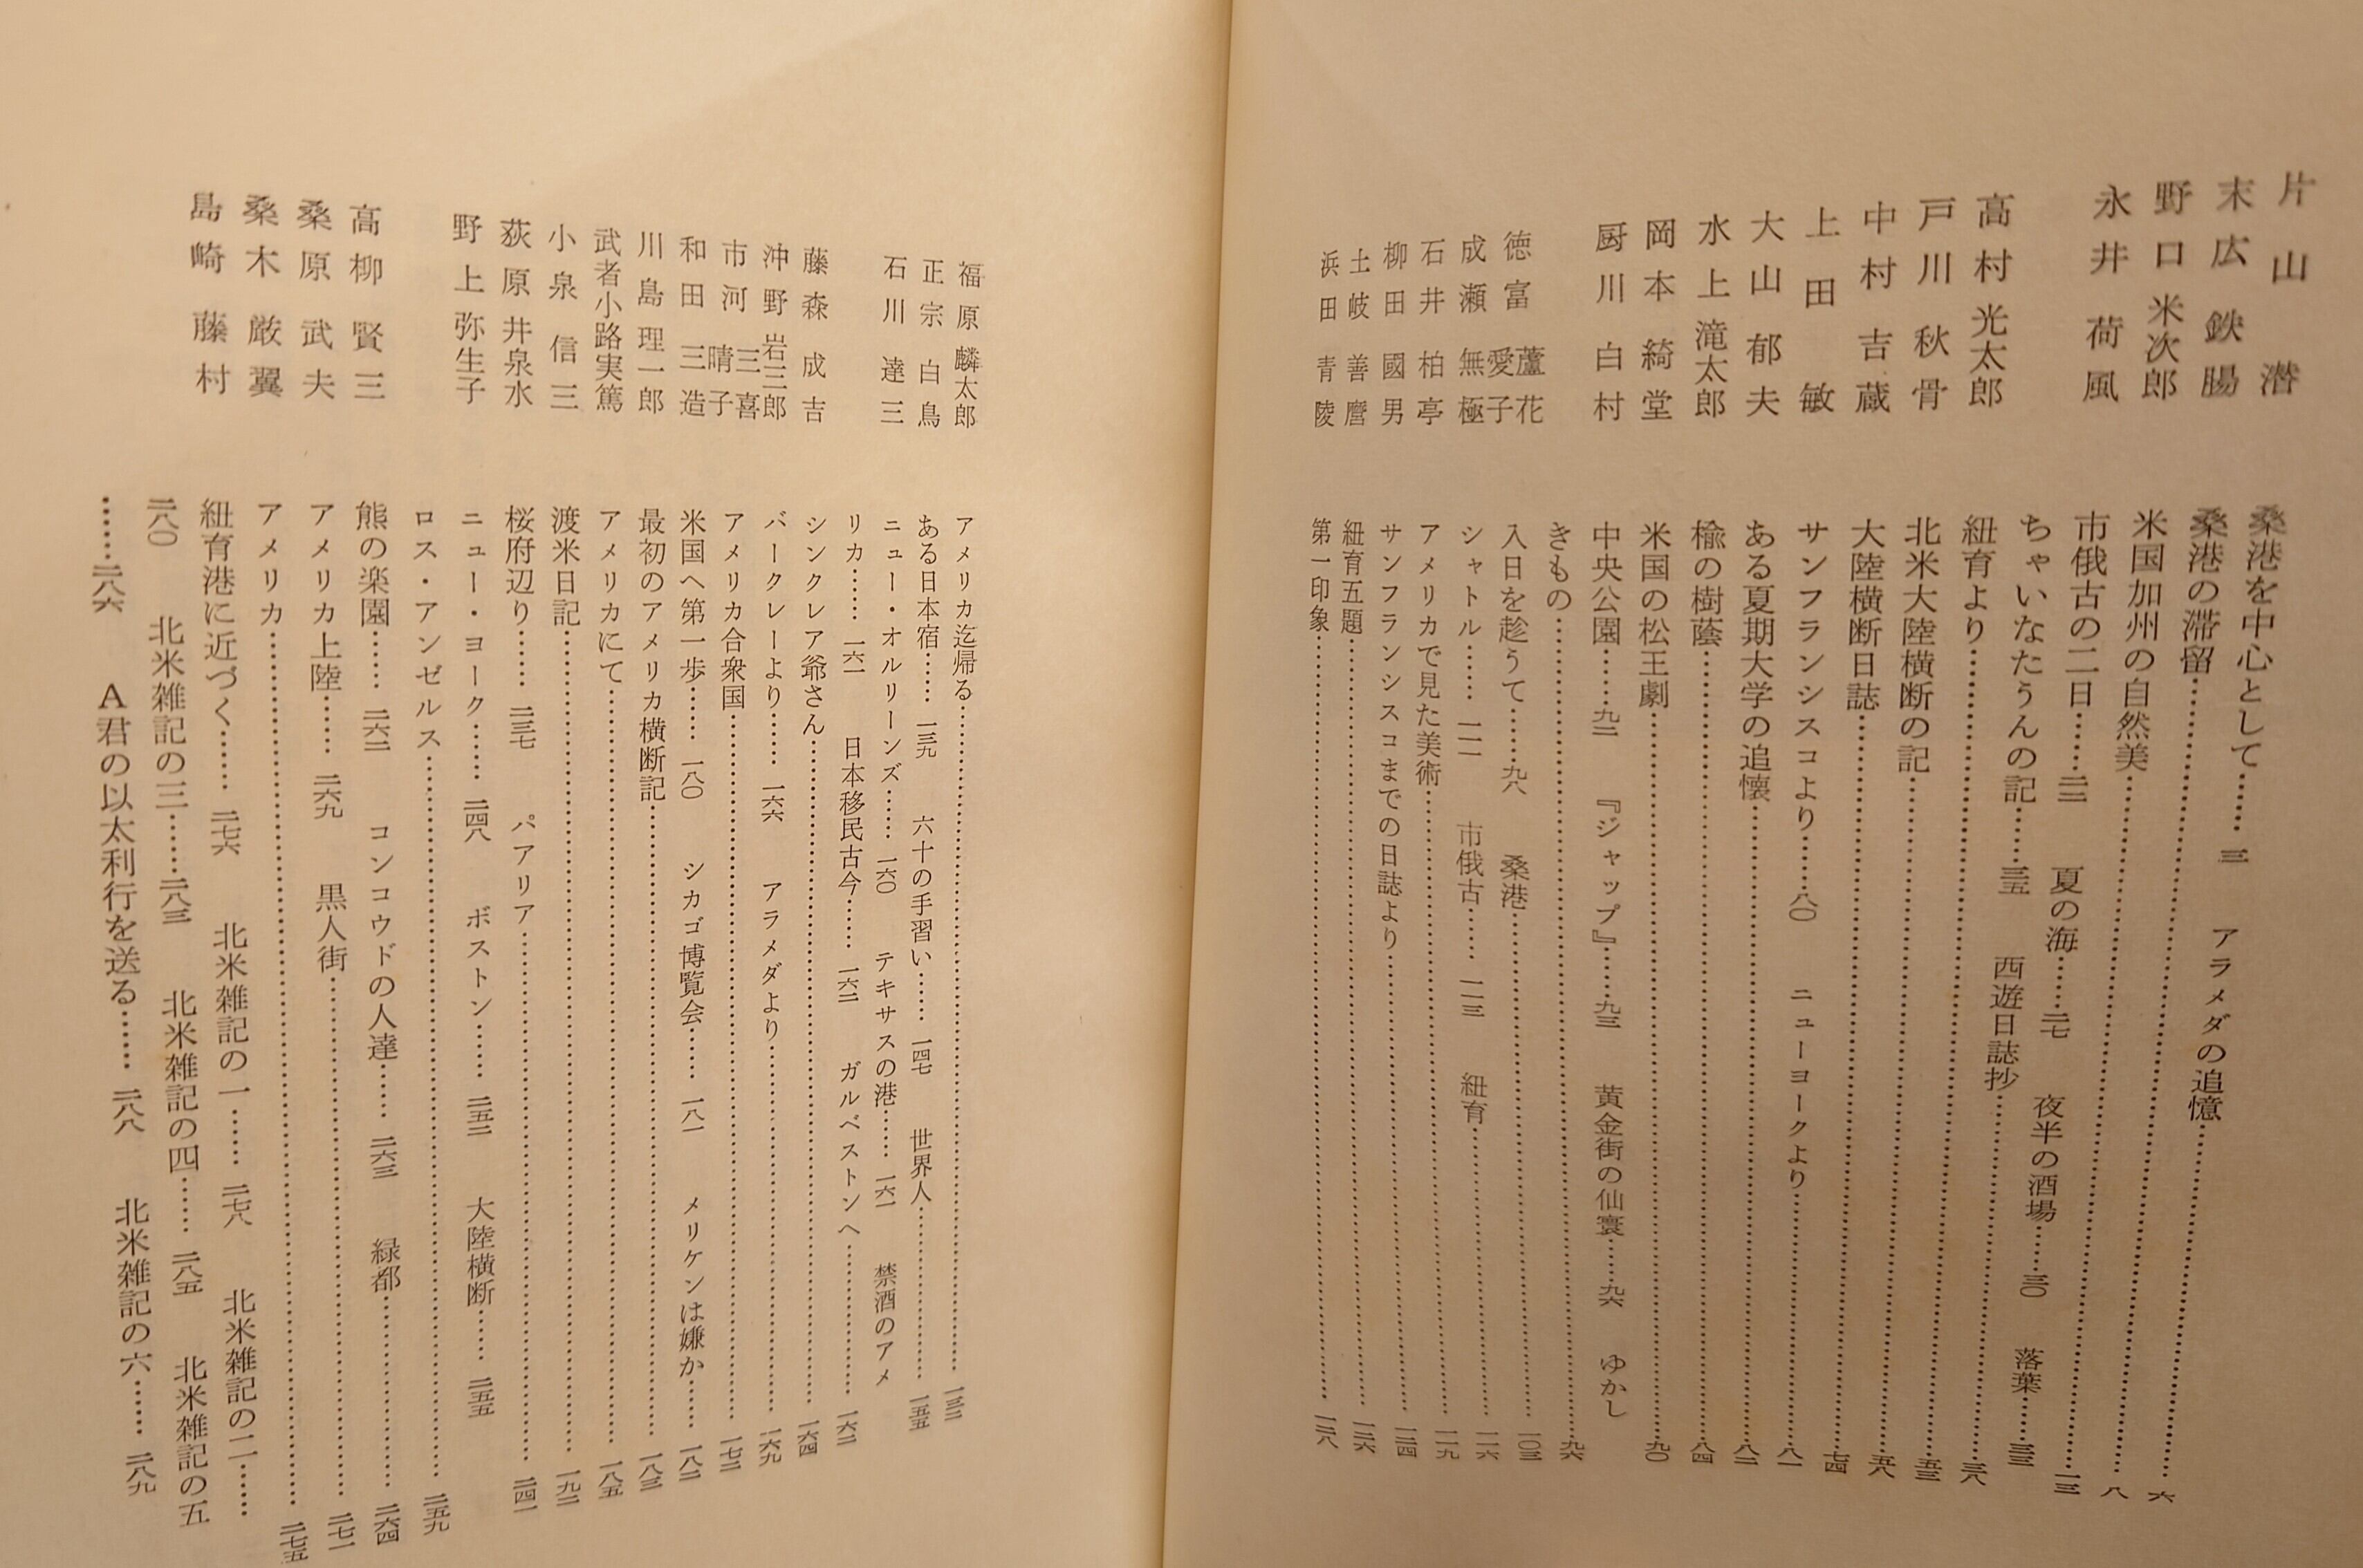 片山潜 桑港を中心として……三 アラメダの追憶……六
末広鉄腸 桑港の滞留……八
野口米次郎 米国加州の自然美……一三
永井荷風 市俄古の二日……二二 夏の海……二七 夜半の酒場……三〇 落葉……三三
ちゃいなたうんの記……三五 西遊日誌抄……三八
高村光太郎 紐育より……五三
戸川秋骨 北米大陸横断の記……五八
中村吉蔵 大陸横断日誌……七四
上田敏 サンフランシスコより……八〇 ニューヨークより……八一
大山郁夫 ある夏期大学の追懐……八二
水上滝太郎 楡の樹蔭……八四
岡本綺堂 米国の松王劇……九〇
厨川白村 中央公園……九二 『ジャップ』……九三 黄金街の仙寰……九六 ゆかし
きもの……九六
徳冨蘆花 愛子 入日を趁うて……九八 桑港……一〇三
成瀬無極 シャトル……一一一 市俄古……一一三 紐育……一一六
石井柏亭 アメリカで見た美術……一一九
柳田國男 サンフランシスコまでの日誌より……一二四
土岐善麿 紐育五題……一二六
浜田青陵 第一印象……一二八
福原麟太郎 アメリカ迄帰る……一三二
正宗白鳥 ある日本宿……一三九 六十の手習い……一四七 世界人……一五五
石川達三 ニュー・オルリーンズ……一六〇 テキサスの港……一六一 禁酒のアメ
リカ……一六一 日本移民古今……一六二 ガルベストンへ……一六二
藤森成吉 シンクレア爺さん……一六四
沖野岩三郎 バークレーより……一六六 アラメダより……一六九
市河三喜 晴子 アメリカ合衆国……一七二
和田三造 米国へ第一歩……一八〇 シカゴ博覧会……一八一 メリケンは嫌か……一八二
川島理一郎 最初のアメリカ横断記……一八三
武者小路実篤 アメリカにて……一八五
小泉信三 渡米日記……一九二
荻原井泉水 桜府辺り……二三七 パアリア……二四一
野上弥生子 ニュー・ヨーク……二四八 ボストン……二五二 大陸横断……二五五
ロス・アンゼルス……二五九
高柳賢三 熊の楽園……二六二 コンコウドの人達……二六三 緑都……二六四
桑原武夫 アメリカ上陸……二六九 黒人街……二七一
桑木厳翼 アメリカ……二七五
島崎藤村 紐育港に近づく……二七六 北米雑記の一……二七八 北米雑記の二……
二八〇 北米雑記の三……二八三 北米雑記の四……二八五 北米雑記の五
……二八六 A君の以太利行を送る……二八八 北米雑記の六……二八九